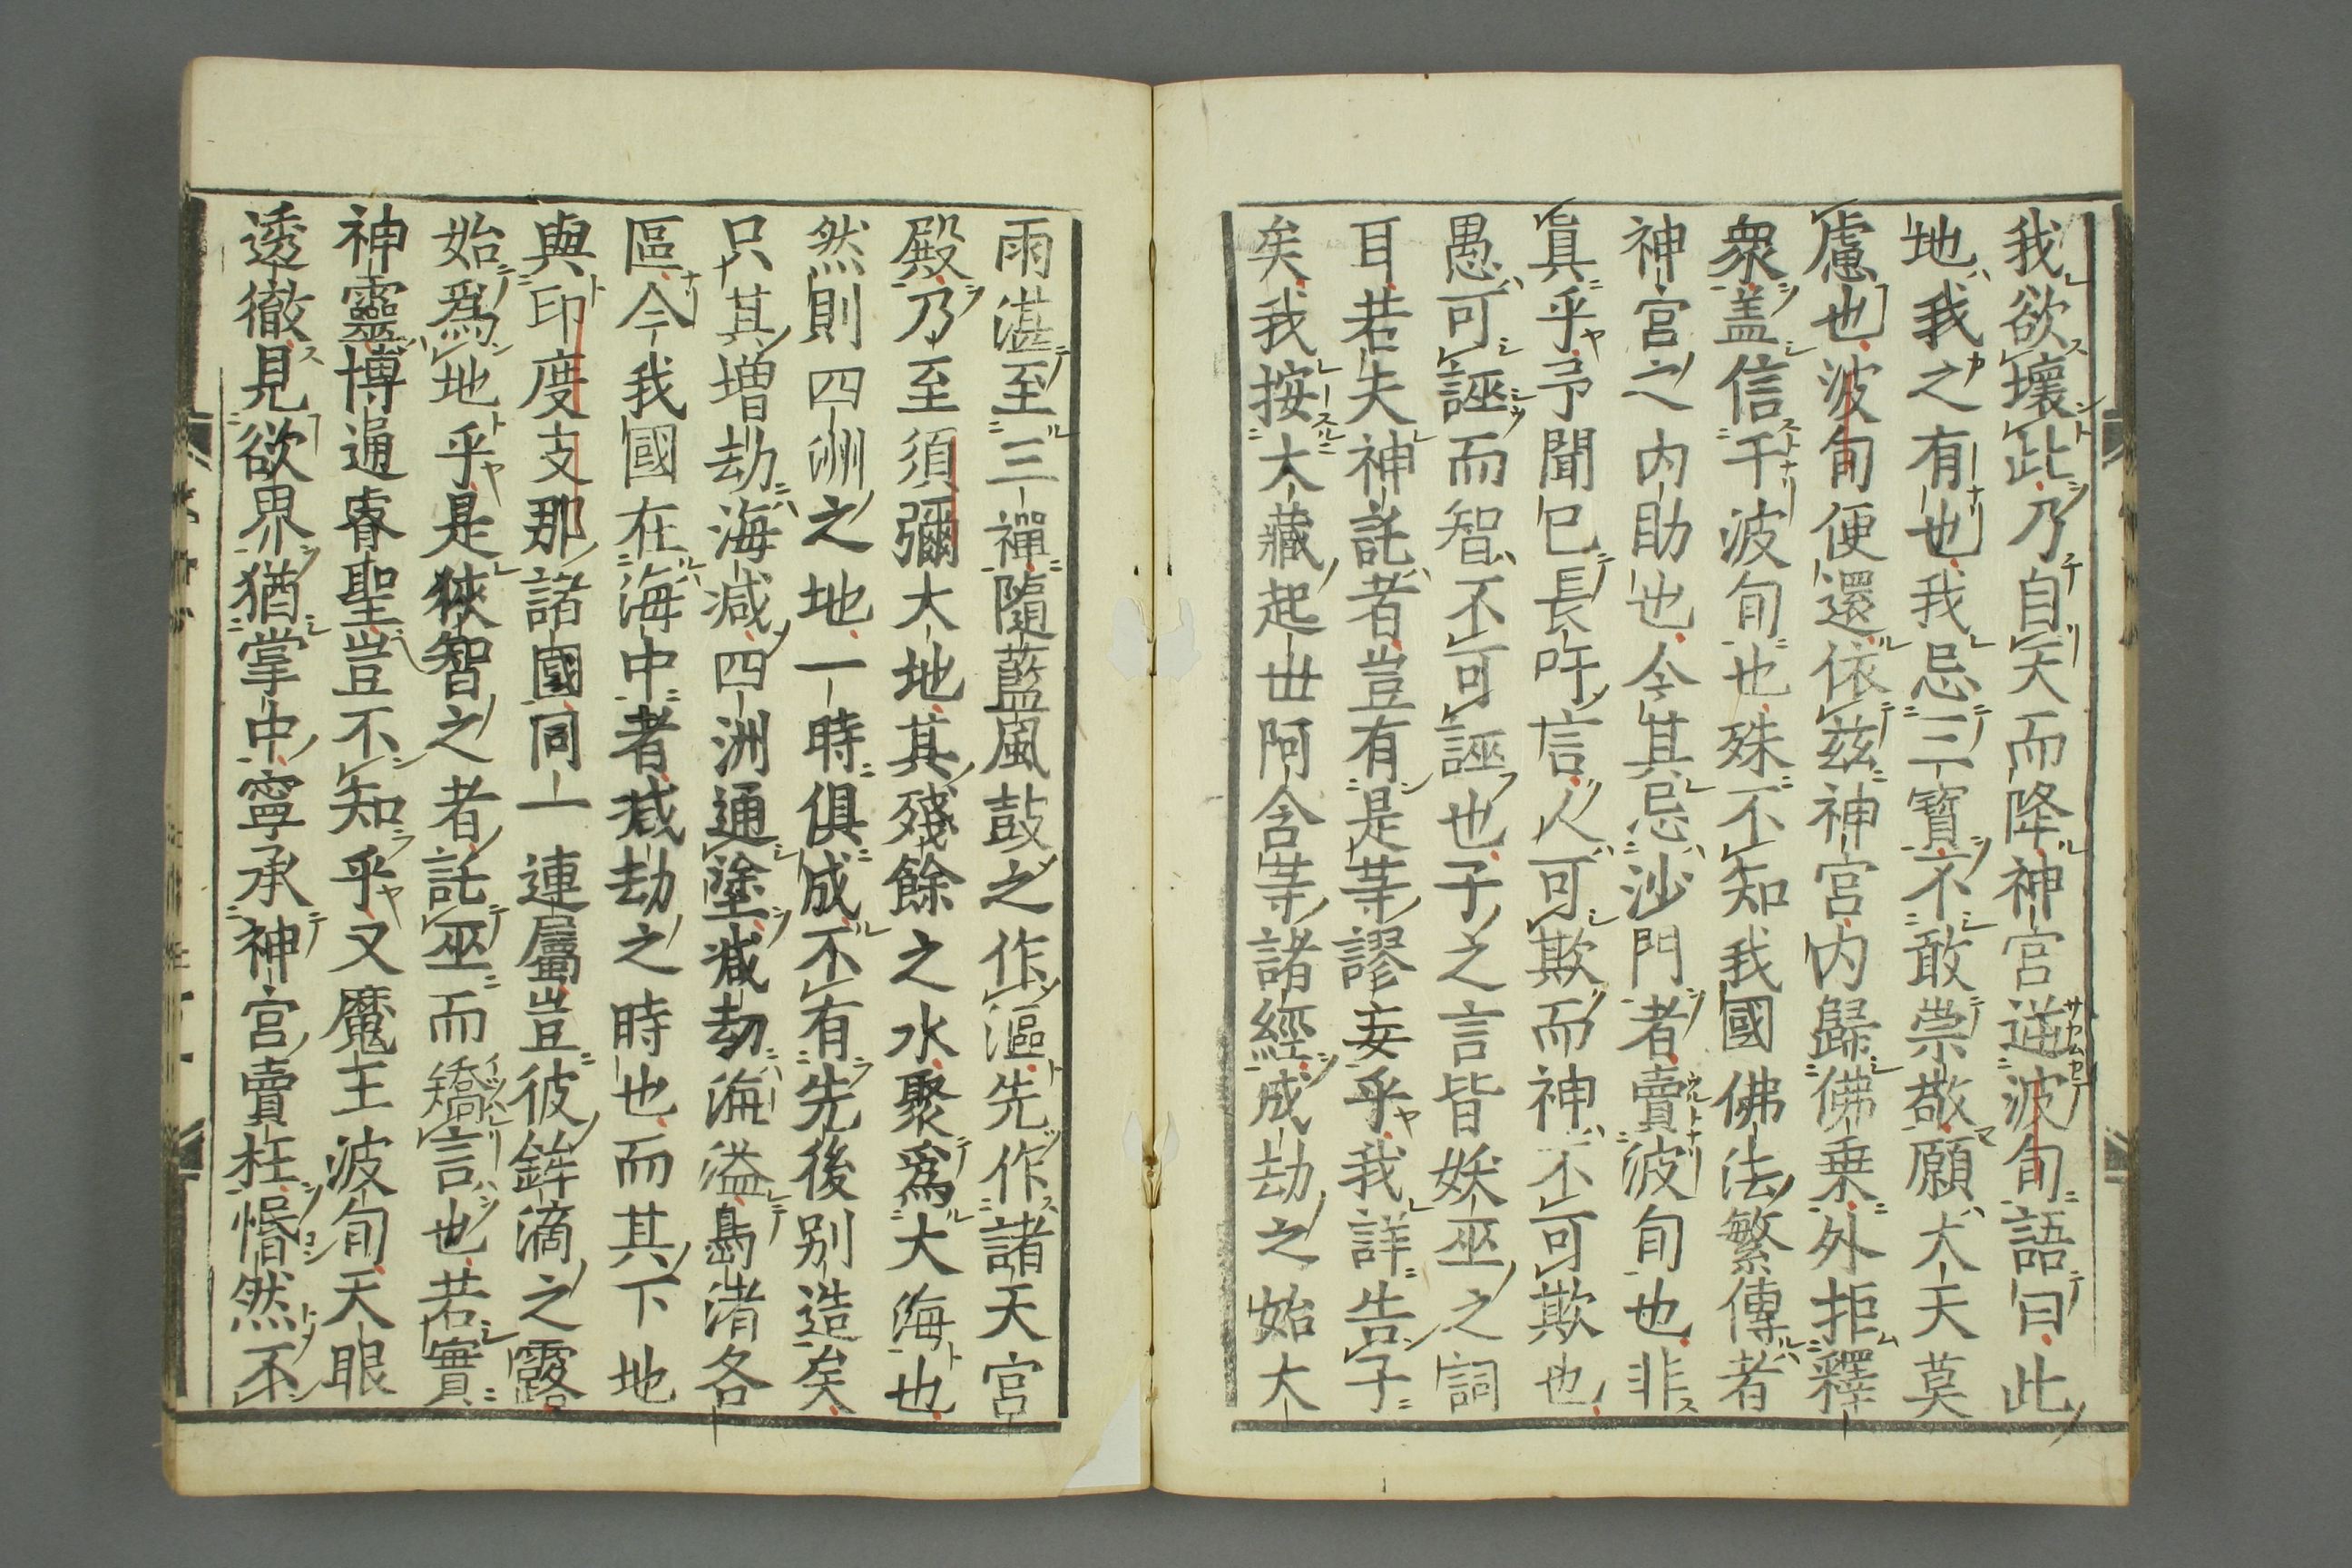 我欲壞此乃自天而降神宮逆波旬語曰此
地我之有也我忌三寶不敢崇敬願大天莫
慮也波旬便還依茲神宮内歸佛乗外拒釋
衆盖信千波旬也殊不知我國佛法繁傳者
神宮之内助也今其忌沙門者賣波旬也非
眞乎予聞已長吁言人可欺而神不可欺也
愚可誣而智不可誣也子之言皆妖巫之詞
耳若夫神託者豈有是等謬妄乎我詳告子
矣我按大藏起世阿含等諸經成劫之始大
雨湛至三禪隨藍風鼓之作漚先作諸天宮
殿乃至須彌大地其殘餘之水聚爲大海也
然則四洲之地一時俱成不有先後別造矣
只其增劫海減四洲通塗減劫海溢島渚各
區今我國在海中者減劫之時也而其下地
與印度支那諸國同一連屬豈彼鉾滴之露
始爲地乎是狹智之者託巫而矯言也若實
神靈博通睿聖豈不知乎又魔王波旬天眼
透徹見欲界猶掌中寧承神宮賣枉惛然不